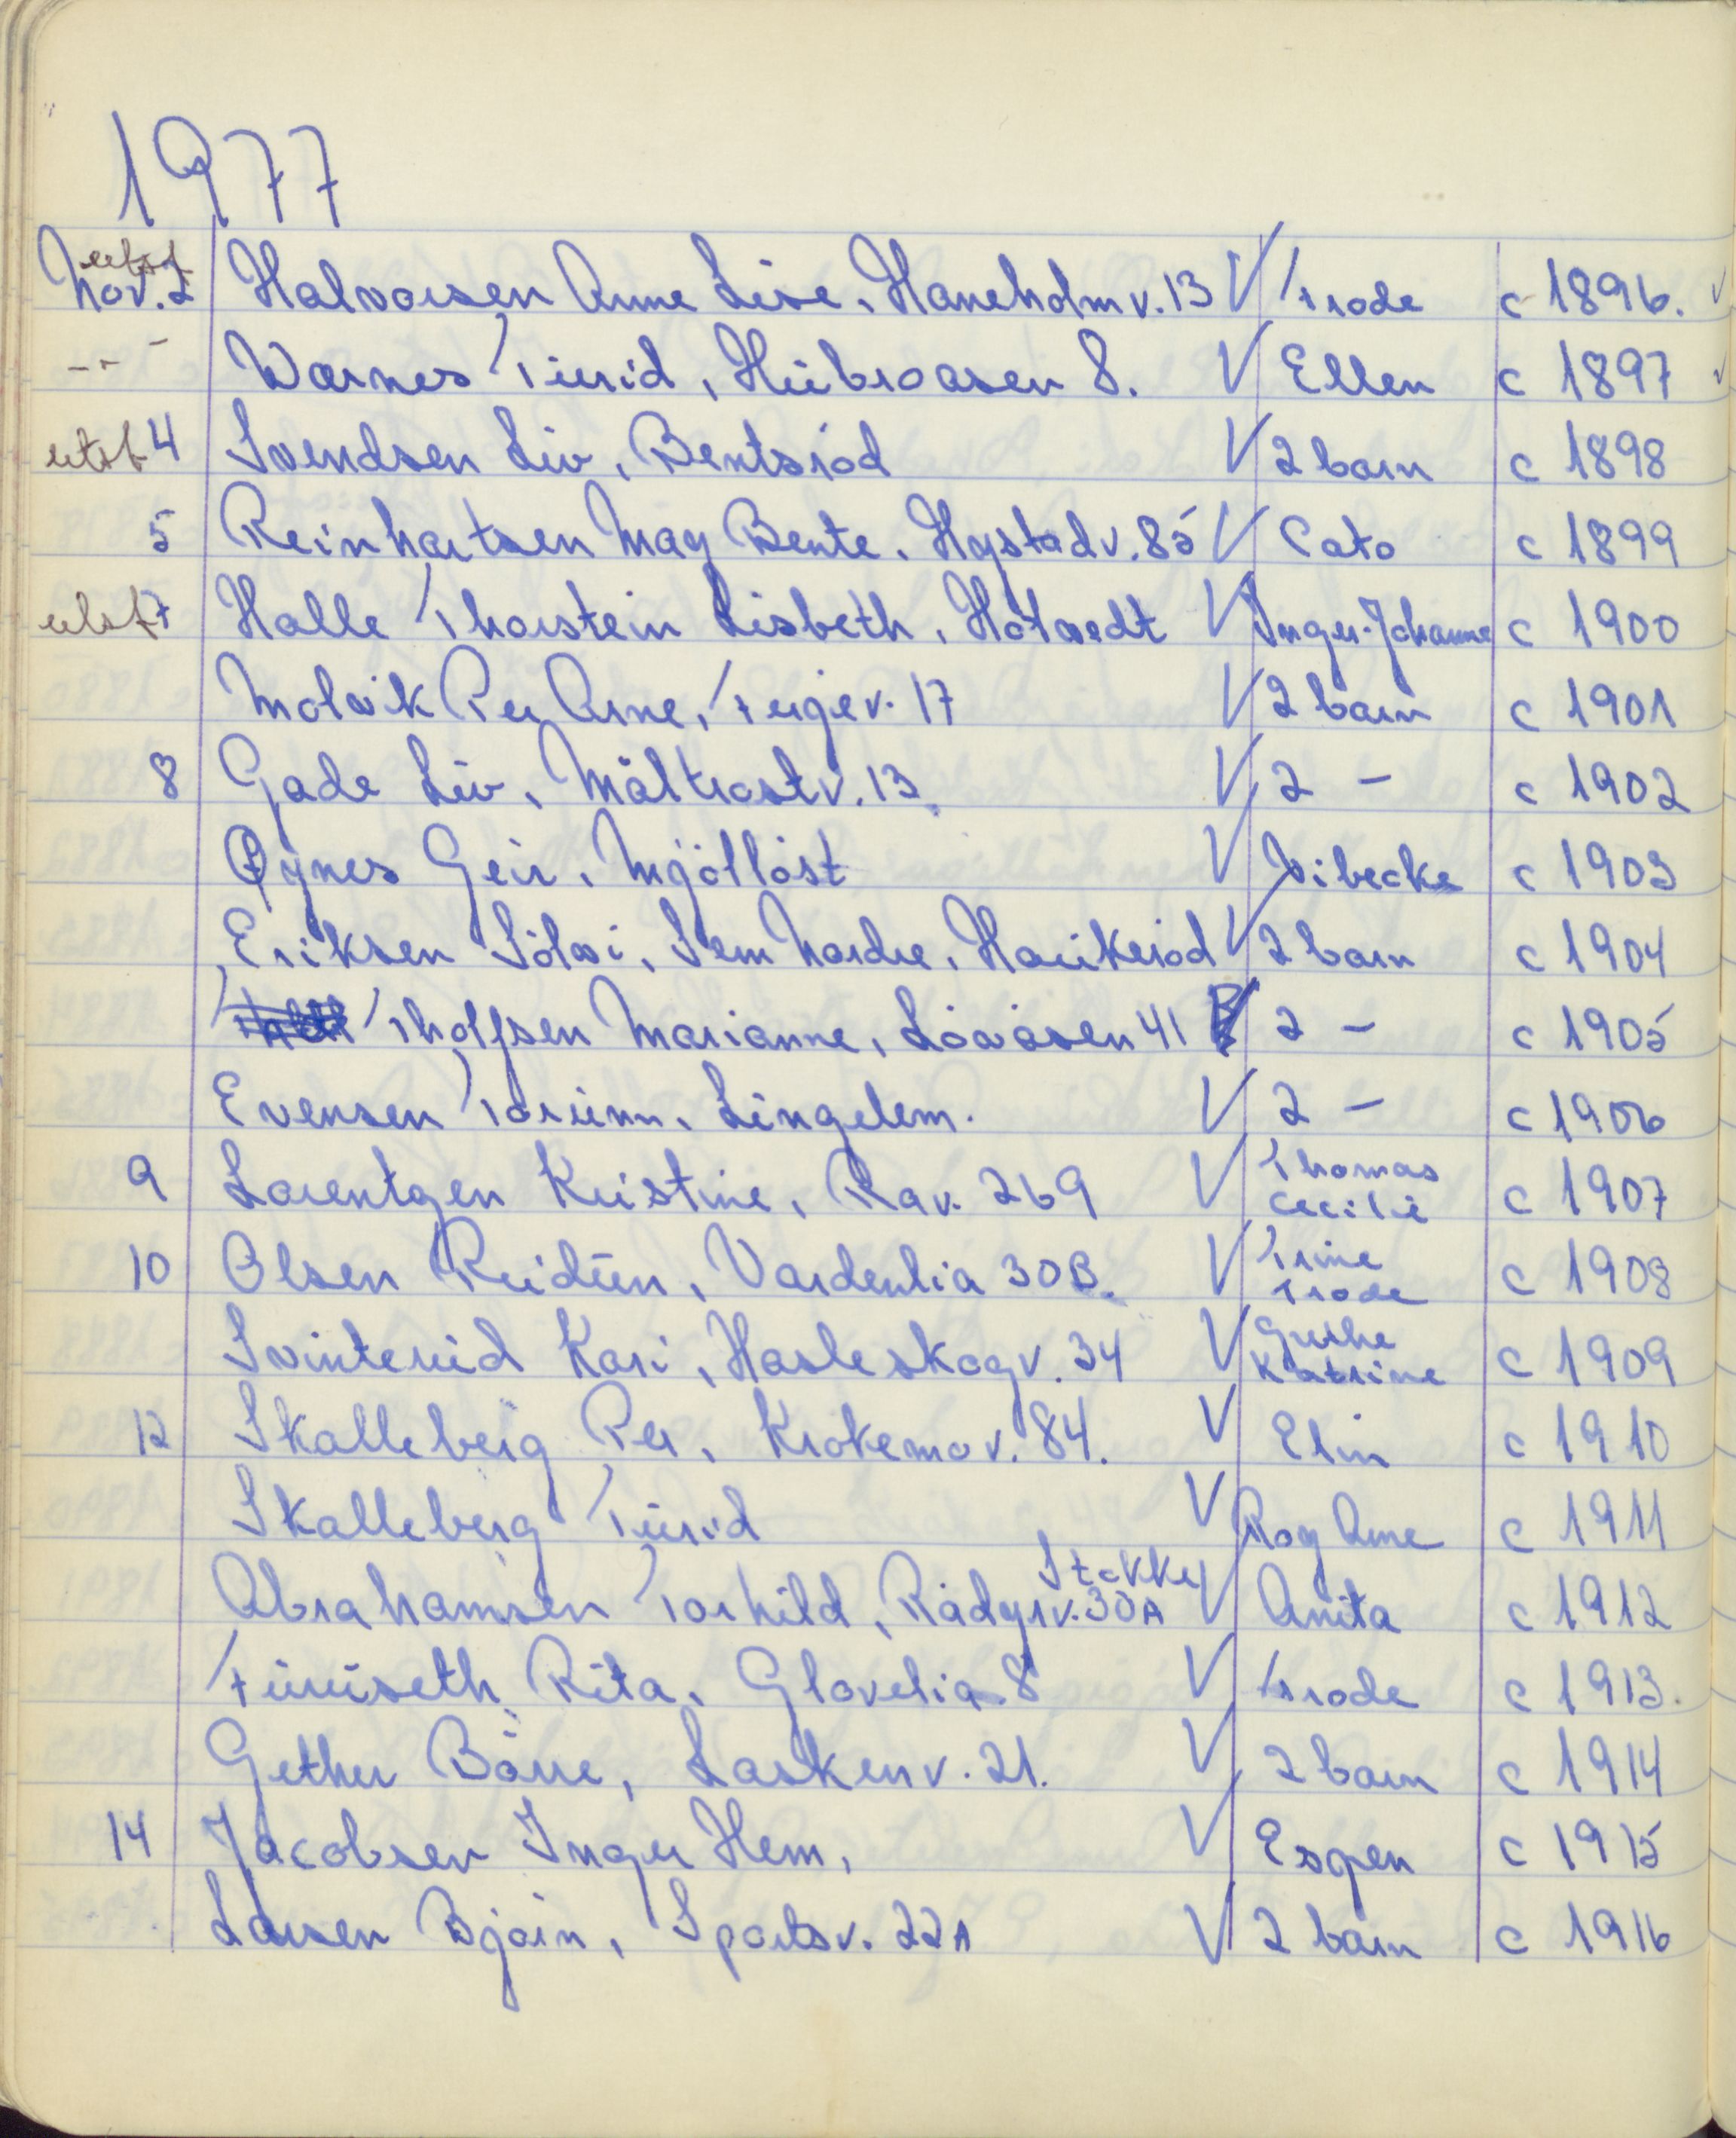 1977
utsf
Nov. 2 Halvorsen Anne Lise, Haneholmv. 13 V Frode c 1896. ✓
--- Warnes Turid, Hübroåsen 8. V Ellen c 1897 ✓
utsf 4 Svendsen Liv, Bentsrød V 2 barn c 1898
5 Reinhartsen May Bente, Hystadv. 85 V Cato c 1899
utsf 7 Halle Thorstein Lisbeth, Hotvedt V Inger-Johanne c 1900
Molvik Per Arne, Fergev. 17 V 2 barn c 1901
8 Gade Liv, Måltrostv. 13. V 2 - c 1902
Øynes Geir, Mjølløst V Vibecke c 1903
Eriksen Sølvi, Sem Nordre, Haukerød V 2 barn c 1904
Tholfsen Marianne, Løvåsen 41 B 2 - c 1905
Evensen Torunn, Lingelem. V 2 - c 1906
9 Lorentzen Kristine, Rav. 269 V Thomas Cecilie c 1907
10 Olsen Reidun, Vardenlia 30B. V Trine Frode c 1908
Svinterud Kari, Hasleskogv. 34 V Grethe Katrine c 1909
12 Skalleberg Per, Krokemov. 84. V Elin c 1910
Skalleberg Turid V Roy Arne c 1911
Stokke
Abrahamsen Torhild, Rådyrv. 30A V Anita c 1912
Furuseth Rita, Glovelia 8 V Frode c 1913.
Gether Børre, Laskenv. 21. V 2 barn c 1914
14 Jacobsen Inger Hem, V Espen c 1915
Larsen Bjørn, Sportsv. 22A V 2 barn c 1916